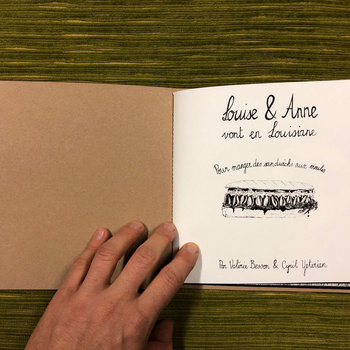 Louise & Anne
vont en Louisiane
Pour manger des sandwichs aux moules
Par Valérie Besson & Cyril